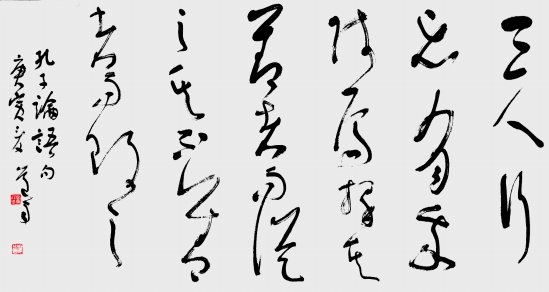 三人行
必有我
師焉擇其
善者而從
之其不善
者而改之
孔子論語句
庚寅夏